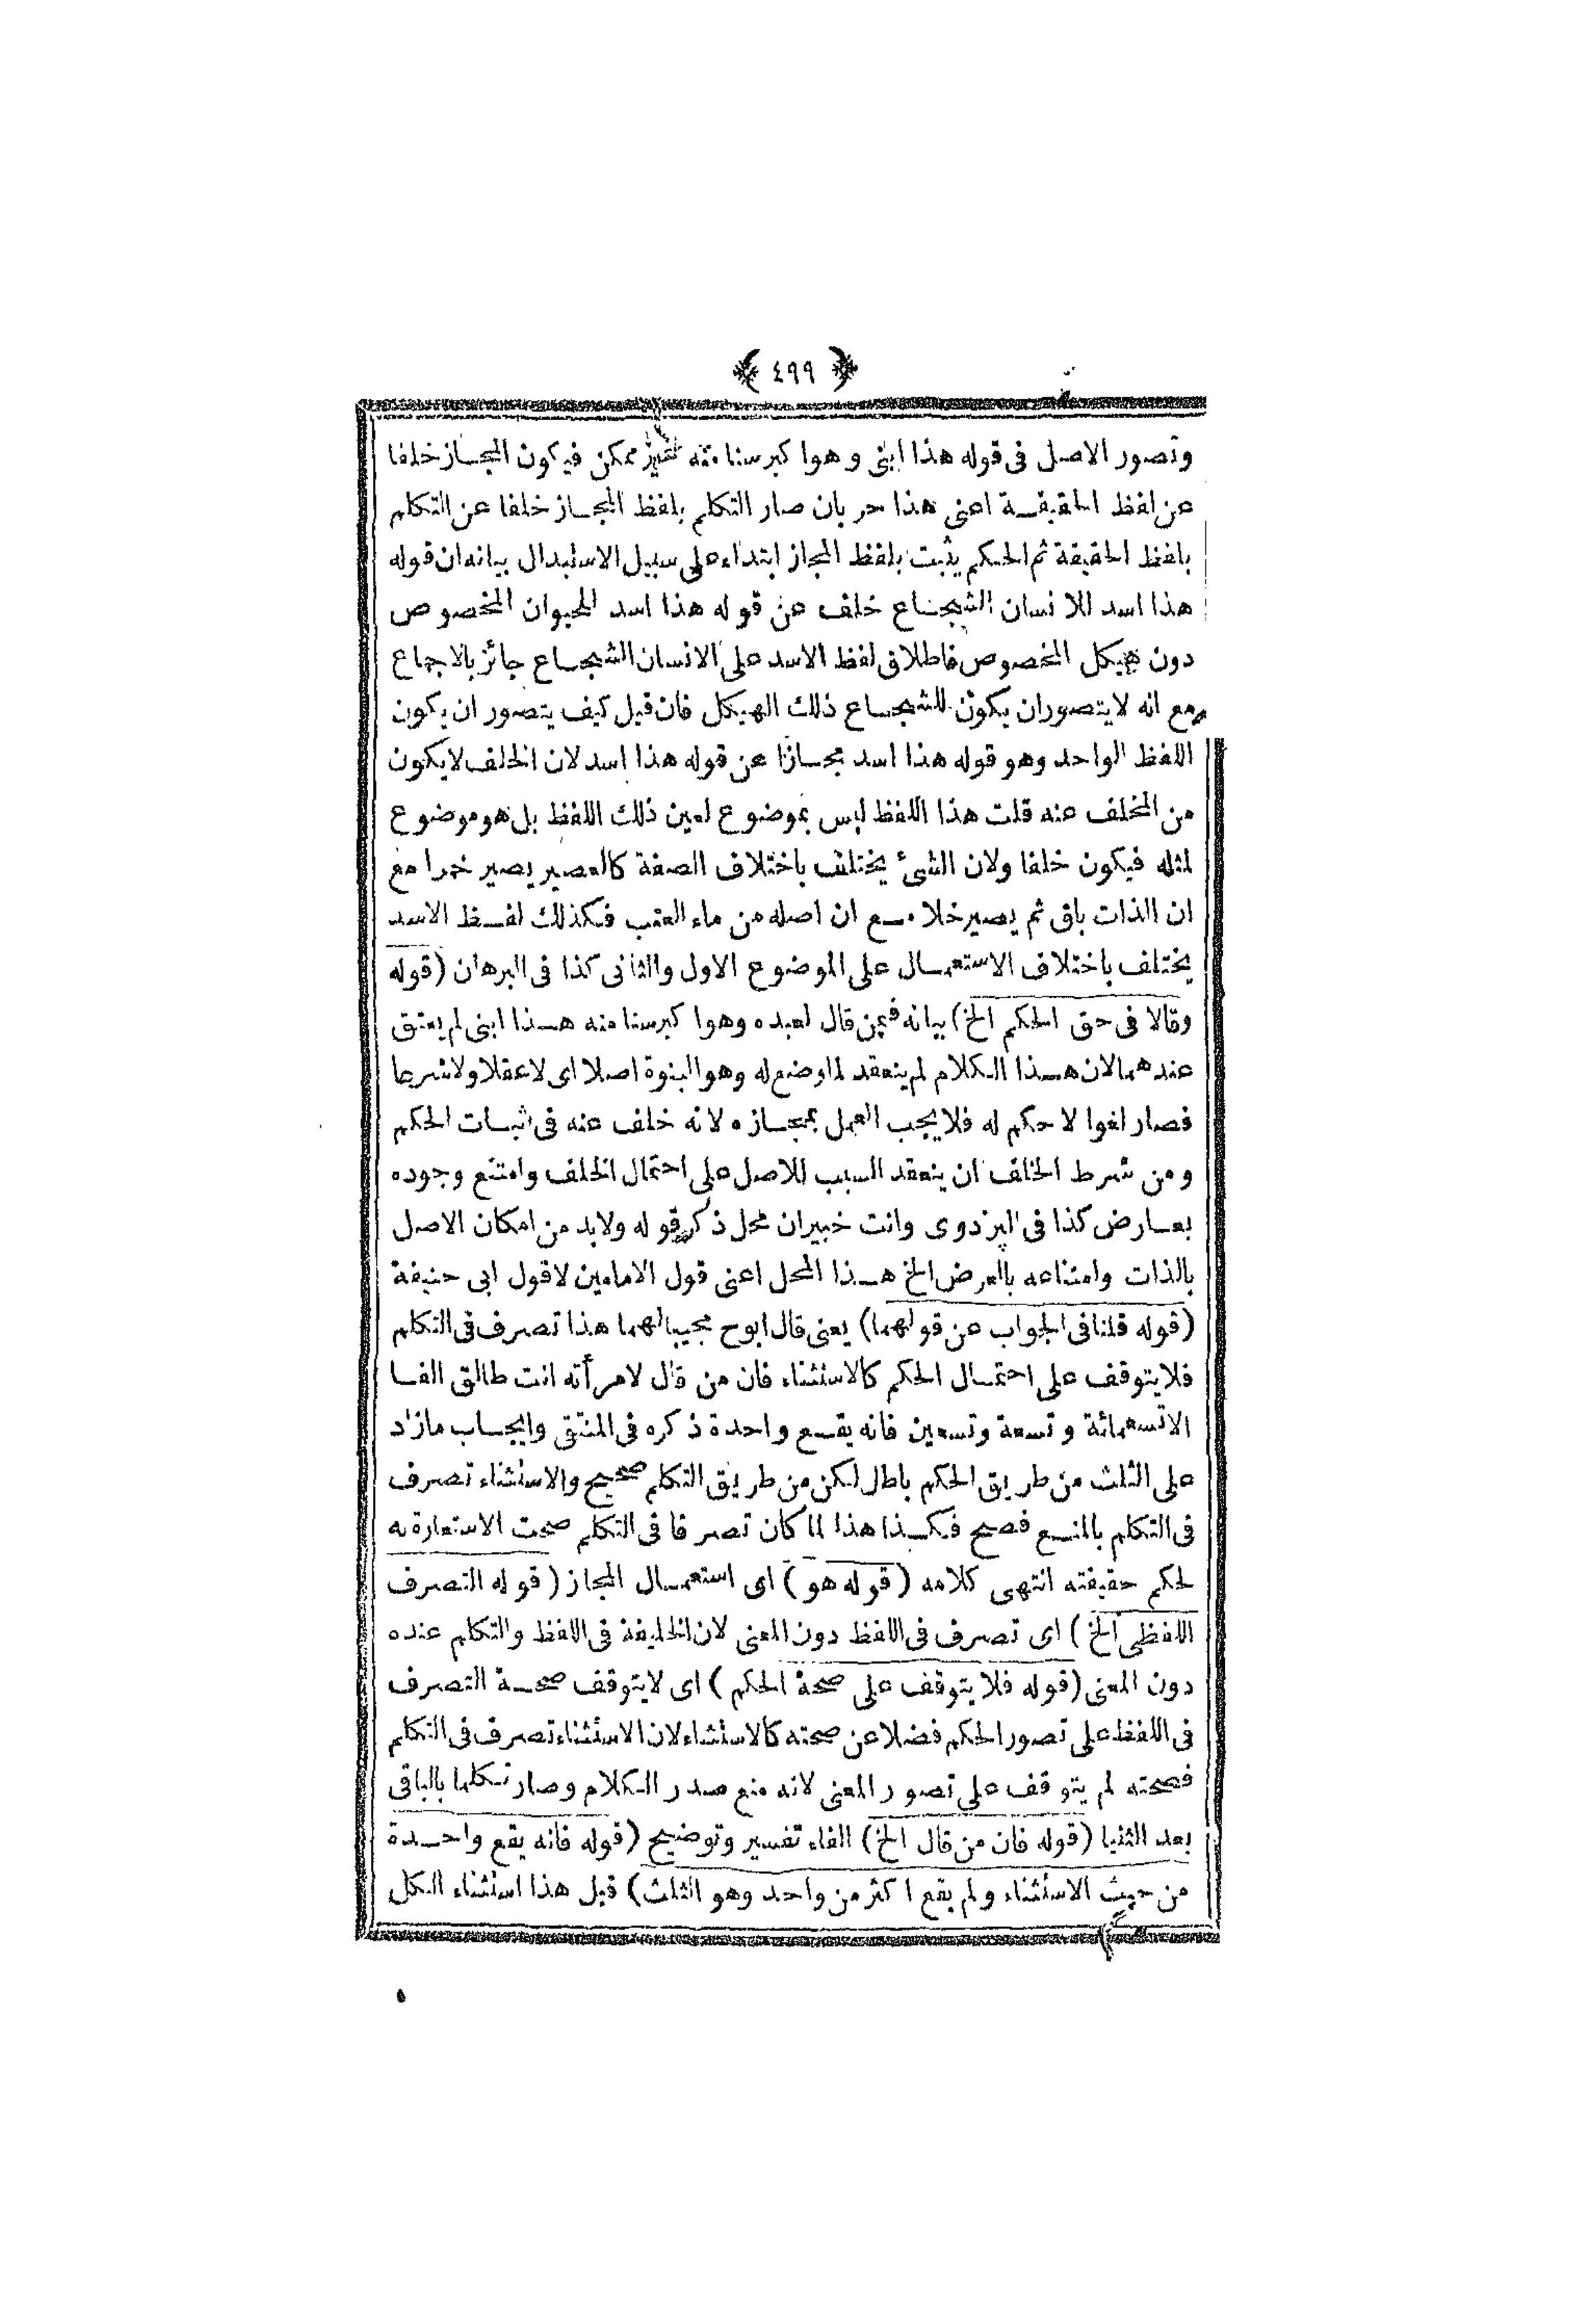 ﴿ ٤٩٩ ﴾
وتصور الاصل فى قوله هذا ابنى وهوا كبر سنا منه غير ممكن فيكون المجاز خلفا
عن لفظ الحقيقة اعنى هذا حر بان صار التكلم بلفظ المجاز خلفا عن التكلم
بلفظ الحقيقة ثم الحكم يثبت بلفظ المجاز ابتداء على سبيل الاستبدال بيانه ان قوله
هذا اسد للانسان الشجاع خلف عن قوله هذا اسد للحيوان المخصوص
دون هيكل المخصوص فاطلاق لفظ الاسد على الانسان الشجاع جائز بالاجماع
مع انه لا يتصور ان يكون للشجاع ذلك الهيكل فان قيل كيف يتصور ان يكون
اللفظ الواحد وهو قوله هذا اسد مجازا عن قوله هذا اسد لان الخلف لا يكون
من المخلف عنه قلت هذا اللفظ ليس بموضوع لعين ذلك اللفظ بل هو موضوع
لمثله فيكون خلفا ولان الشئ يختلف باختلاف الصفة كالعصير يصير خمرا مع
ان الذات باق ثم يصير خلا مع ان اصله من ماء العنب فكذلك لفظ الاسد
يختلف باختلاف الاستعمال على الموضوع الاول والثانى كذا فى البرهان (قوله
وقالا فى حق الحكم الخ) بيانه فيمن قال لعبده وهوا كبر سنا منه هذا ابنى لم يعتق
عندهما لان هذا الكلام لم ينعقد لما وضع له وهو البنوة اصلا اى لا عقلا ولا شرعا
فصار لغوا لا حكم له فلا يجب العمل بمجازه لانه خلف عنه فى اثبات الحكم
ومن شرط الخلف ان ينعقد السبب للاصل على احتمال الخلف وامتنع وجوده
بعارض كذا فى البزدوى وانت خبير ان محل ذكر قوله ولا بد من امكان الاصل
بالذات وامتناعه بالعرض الخ هذا المحل اعنى قول الامامين لا قول ابى حنيفة
(قوله قلنا فى الجواب عن قولهما) يعنى قال ابوح مجيبا لهما هذا تصرف فى التكلم
فلا يتوقف على احتمال الحكم كالاستثناء فان من قال لامرأته انت طالق الفا
الا تسعمائة وتسعة وتسعين فانه يقع واحدة ذكره فى المنتقى وايجاب مازاد
على الثلث من طريق الحكم باطل لكن من طريق التكلم صحيح والاستثناء تصرف
فى التكلم بالمنع فصح فكذا هذا لما كان تصرفا فى التكلم صحت الاستعارة به
لحكم حقيقته انتهى كلامه (قوله هو) اى استعمال المجاز (قوله التصرف
اللفظى الخ) اى تصرف فى اللفظ دون المعنى لان الخليفة فى اللفظ والتكلم عنده
دون المعنى (قوله فلا يتوقف على صحة الحكم) اى لا يتوقف صحة التصرف
فى اللفظ على تصور الحكم فضلا عن صحته كالاستثناء لان الاستثناء تصرف فى التكلم
فصحته لم يتوقف على تصور المعنى لانه منع صدر الكلام وصار تكلما بالباقى
بعد الثنيا (قوله فان من قال الخ) الفاء تفسير وتوضيح (قوله فانه يقع واحدة
من حيث الاستثناء ولم يقع اكثر من واحد وهو الثلث) قيل هذا استثناء الكل